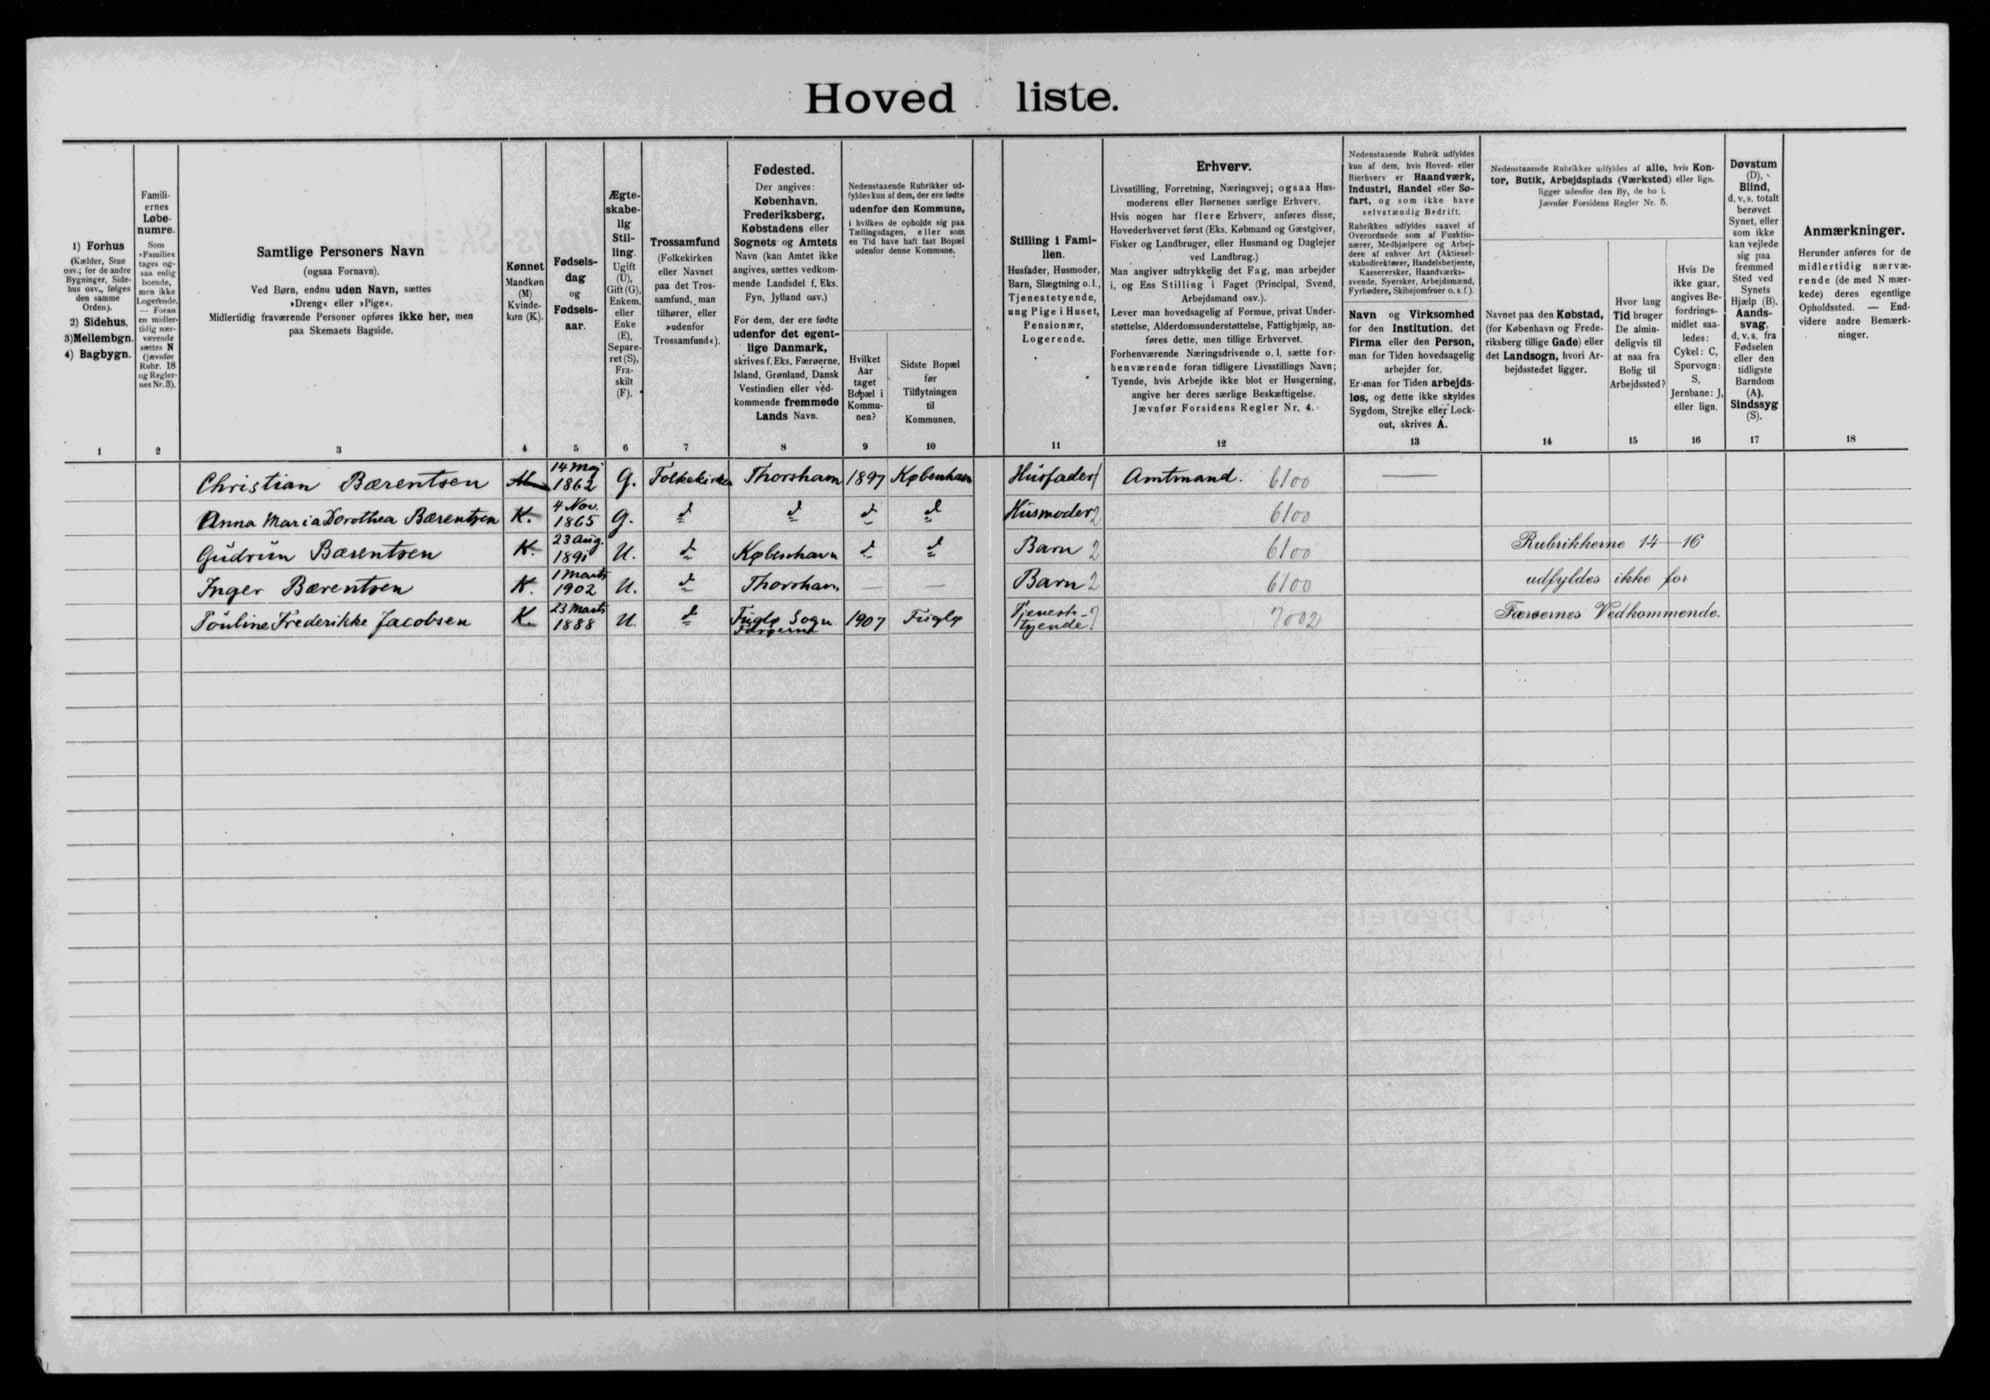 Hoved liste.
1) Forhus
(Kælder, Stue
osv.; for de andre
Bygninger, Side-
hus osv., følges
den samme
Orden).
2) Sidehus.
3) Mellembgn.
4) Bagbygn.
Famili-
ernes
Løbe-
numre.
Som
»Familie«
tages og-
saa enlig
boende,
men ikke
Logerende.
— Foran
en midler-
tidig nær-
værende
sættes N
(jævnfør
Rubr. 18
og Regler-
nes Nr. 3).
Samtlige Personers Navn
(ogsaa Fornavn).
Ved Børn, endnu uden Navn, sættes
»Dreng« eller »Pige«.
Midlertidig fraværende Personer opføres ikke her, men
paa Skemaets Bagside.
Kønnet
Mandkøn
(M)
Kvinde-
køn (K).
Fødsels-
dag
og
Fødsels-
aar.
Ægte-
skabe-
lig
Stil-
ling.
Ugift
(U),
Gift (G),
Enkem.
eller
Enke
(E),
Separe-
ret (S),
Fra-
skilt
(F).
Trossamfund
(Folkekirken
eller Navnet
paa det Tros-
samfund, man
tilhører, eller
»udenfor
Trossamfund«).
Fødested.
Der angives:
København,
Frederiksberg,
Købstadens eller
Sognets og Amtets
Navn (kan Amtet ikke
angives, sættes vedkom-
mende Landsdel f. Eks.
Fyn, Jylland osv.)
For dem, der ere fødte
udenfor det egent-
lige Danmark,
skrives f. Eks. Færøerne,
Island, Grønland, Dansk
Vestindien eller ved-
kommende fremmede
Lands Navn.
Nedenstaaende Rubrikker ud-
fyldes kun af dem, der ere fødte
udenfor den Kommune,
i hvilken de opholde sig paa
Tællingsdagen, eller som
en Tid have haft fast Bopæl
udenfor denne Kommune.
Hvilket
Aar
taget
Bopæl i
Kommu-
nen?
Sidste Bopæl
før
Tilflytningen
til
Kommunen.
Stilling i Fami-
lien.
Husfader, Husmoder,
Barn, Slægtning o. l.,
Tjenestetyende,
ung Pige i Huset,
Pensionær,
Logerende.
Erhverv.
Livsstilling, Forretning, Næringsvej; ogsaa Hus-
moderens eller Børnenes særlige Erhverv.
Hvis nogen har flere Erhverv, anføres disse,
Hovederhvervet først (Eks. Købmand og Gæstgiver,
Fisker og Landbruger, eller Husmand og Daglejer
ved Landbrug.)
Man angiver udtrykkelig det Fag, man arbejder
i, og Ens Stilling i Faget (Principal, Svend,
Arbejdsmand osv.).
Lever man hovedsagelig af Formue, privat Under-
støttelse, Alderdomsunderstøttelse, Fattighjælp, an-
føres dette, men tillige Erhvervet.
Forhenværende Næringsdrivende o. l. sætte for-
henværende foran tidligere Livsstillings Navn;
Tyende, hvis Arbejde ikke blot er Husgerning,
angive her deres særlige Beskæftigelse.
Jævnfør Forsidens Regler Nr. 4.
Nedenstaaende Rubrik udfyldes
kun af dem, hvis Hoved- eller
Bierhverv er Haandværk,
Industri, Handel eller Sø-
fart, og som ikke have
selvstændig Bedrift.
Rubrikken udfyldes saavel af
Overordnede som af Funktio-
nærer, Medhjælpere og Arbej-
dere af enhver Art (Aktiesel-
skabsdirektører, Handelsbetjente,
Kasserersker, Haandværks-
svende, Syersker, Arbejdsmænd,
Fyrbødere, Skibsjomfruer o. s. f.).
Navn og Virksomhed
for den Institution, det
Firma eller den Person,
man for Tiden hovedsagelig
arbejder for.
Er man for Tiden arbejds-
løs, og dette ikke skyldes
Sygdom, Strejke eller Lock-
out, skrives A.
Nedenstaaende Rubrikker udfyldes af alle, hvis Kon-
tor, Butik, Arbejdsplads (Værksted) eller lign.
ligger udenfor den By, de bo i.
Jævnfør Forsidens Regler Nr. 5.
Navnet paa den Købstad,
(for København og Frede-
riksberg tillige Gade) eller
det Landsogn, hvori Ar-
bejdsstedet ligger.
Hvor lang
Tid bruger
De almin-
deligvis til
at naa fra
Bolig til
Arbejdssted?
Hvis De
ikke gaar,
angives Be-
fordrings-
midlet saa-
ledes:
Cykel: C,
Sporvogn:
S,
Jernbane: J,
eller lign.
Døvstum
(D),
Blind,
d. v. s. totalt
berøvet
Synet, eller
som ikke
kan vejlede
sig paa
fremmed
Sted ved
Synets
Hjælp (B).
Aands-
svag,
d. v. s. fra
Fødselen
eller den
tidligste
Barndom
(A).
Sindssyg
(S).
Anmærkninger.
Herunder anføres for de
midlertidig nærvæ-
rende (de med N mær-
kede) deres egentlige
Opholdssted. — End-
videre andre Bemærk-
ninger.
1 2 3 4 5 6 7 8 9 10 11 12 13 14 15 16 17 18
Christian Bærentsen M 14 Maj 1862 G. Folkekirken Thorshavn 1897 København Husfader 1 Amtmand. 6100 —
Anna Maria Dorothea Bærentsen K. 4 Nov. 1865 G. d d d d Husmoder 2 6100
Gudrun Bærentsen K. 23 Aug. 1891 U. d København d d Barn 2 6100 Rubrikkerne 14—16
Inger Bærentsen K. 1 Marts 1902 U. d Thorshavn — — Barn 2 6100 udfyldes ikke for
Pouline Frederikke Jacobsen K. 23 Marts 1888 U. d Fuglø Sogn Færøerne 1907 Fuglø Tjeneste-tyende 7002 Færøernes Vedkommende.